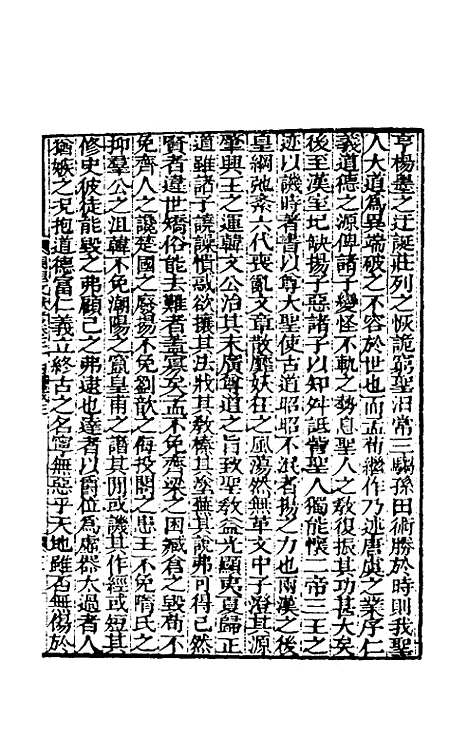 亨楊墨之迂誕莊列之恢詭窮聖汨常三騶孫田術勝於時則我聖
人大道爲異端破之不容於世也而孟荀繼作乃述唐虞之業序仁
義道德之源俾諸子變怪不軌之勢息聖人之教復振其功甚大矣
後至漢室圮缺揚子惡諸子以知舛詆訾聖人獨能懷二帝三王之
迹以譏時著書以尊大聖使古道昭昭不泯者揚之力也兩漢之後
皇綱弛紊六代喪亂文章散靡妖狂之風蕩然無革文中子澄其源
肇興王之運韓文公治其末廣尊道之旨致聖教益光顯夷夏歸正
道雖諸子譊譟憤敚欲攘其法戕其教榛其塗蕪其說弗可得已然
賢者違世矯俗能去難者蓋寡矣孟不免齊梁之困臧倉之毀荀不
免齊人之讒楚國之廢揚不免劉歆之侮投閣之患王不免隋氏之
抑羣公之沮韓不免潮陽之竄皇甫之譖其閒或譏其作經或短其
修史彼徒能毀之弗顧己之弗逮也達者以爵位爲虛器大過者人
猶嫉之況抱道德富仁義立終古之名寧無惡乎天地雖否無傷於